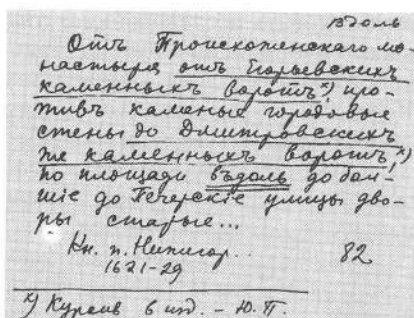 вдоль
Отъ Происхоженскаго мо-
настыря отъ Егорьевскихъ
каменныхъ воротъ х) про-
тивъ каменые городовые
стены до Дмитровскихъ
же каменныхъ воротъ, х)
по площади въдоль до боль-
шіе до Печерскіе улицы дво-
ры старые...
Кн. п. Нижегор..
1621-29
82
х) Курсив 6 изд. - Ю.П.